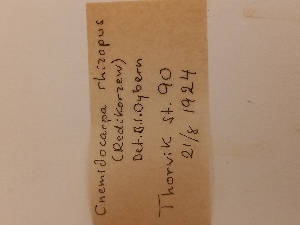 Cnemidocarpa rhizopus
(Redikorzew)
Det. B.I. Dybern
Thorvik St. 90
21/8 1924